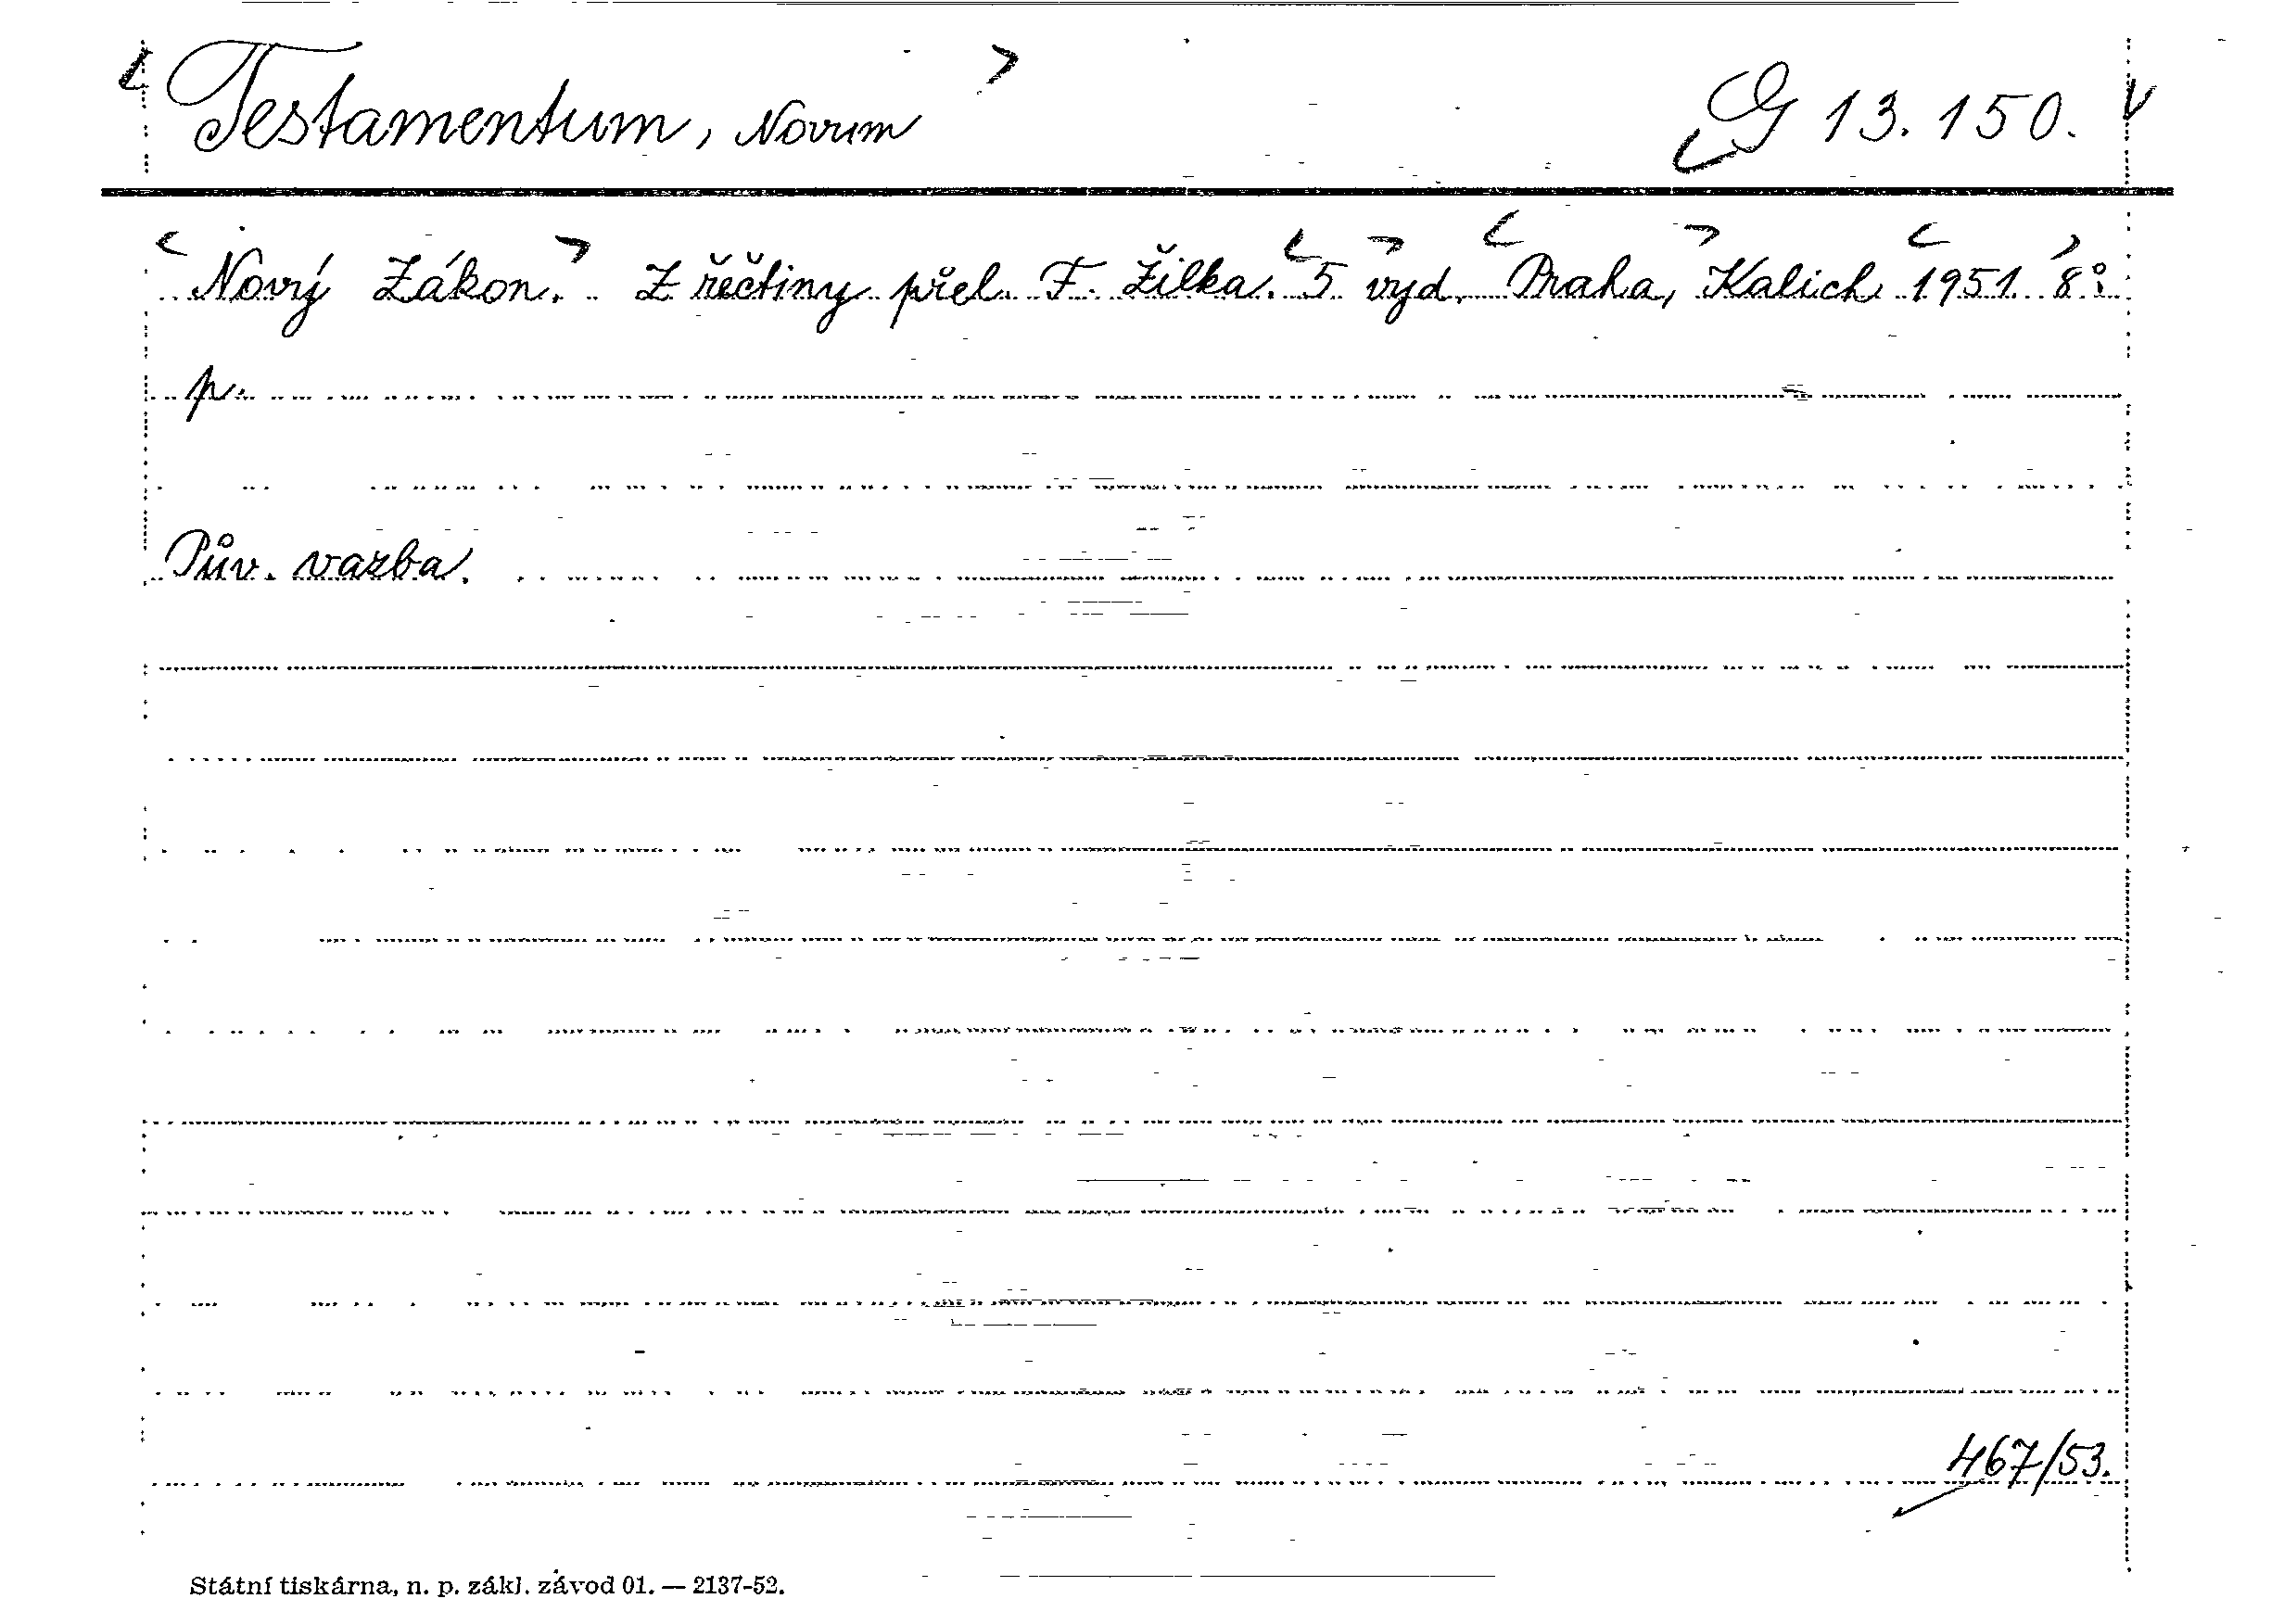 Testamentum, Novum G 13.150.
Nový Zákon. Z řečtiny přel. F. Žilka. 5 vyd. Praha, Kalich 1951. 8°.
p.
Pův. vazba.
467/53.
Státní tiskárna, n. p. zákl. závod 01. — 2137-52.